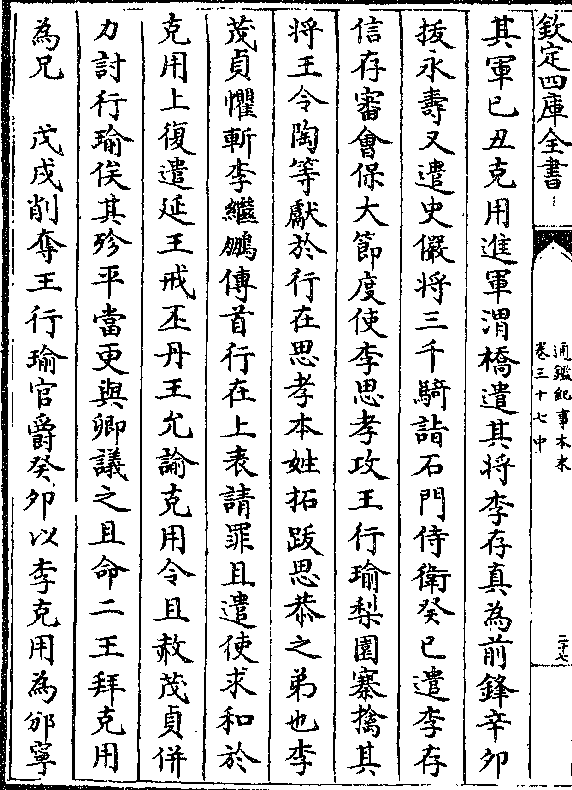 欽定四庫全書
通鑑紀事本末
卷三十七中
二十七
其軍己丑克用進軍渭橋遣其将李存真為前鋒辛卯
拔永壽又遣史儼将三千騎詣石門侍衛癸巳遣李存
信存審會保大節度使李思孝攻王行瑜梨園寨擒其
将王令陶等獻於行在思孝本姓拓跋思恭之弟也李
茂貞懼斬李繼鵬傳首行在上表請罪且遣使求和於
克用上復遣延王戒丕丹王允諭克用令且赦茂貞併
力討行瑜俟其殄平當更與卿議之且命二王拜克用
為兄　戊戌削奪王行瑜官爵癸卯以李克用為邠寧